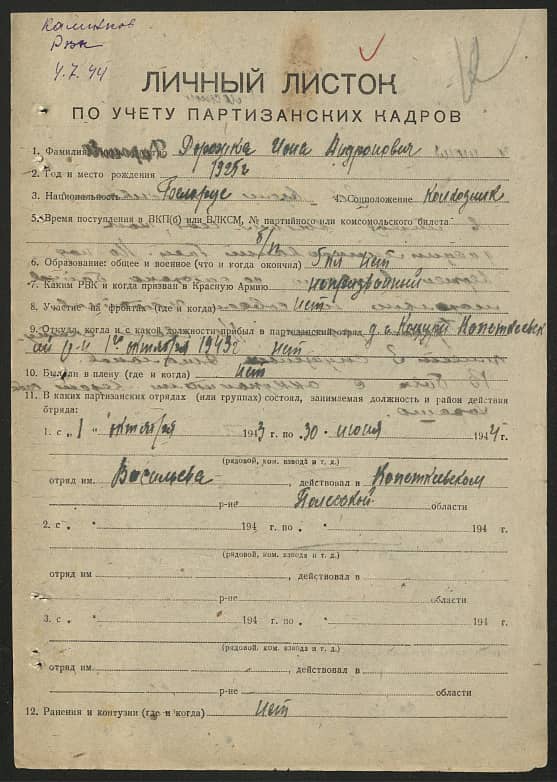 4.7.44
ЛИЧНЫЙ ЛИСТОК
ПО УЧЕТУ ПАРТИЗАНСКИХ КАДРОВ
1. Фамилия Дорожка Андронович
2. Год и место рождения 1925г
3. Национальность Белорус 4. Соцположение Колхозник
5. Время поступления в ВКП(б) или ВЛКСМ, № партийного или комсомольского билета
б/п
6. Образование: общее и военное (что и когда окончил) 5кл Нет
7. Каким РВК и когда призван в Красную Армию непризванный
8. Участие на фронтах (где и когда) Нет
9. Откуда, когда и с какой должности прибыл в партизанский отряд Копаткевск
ий р-н 1го октября 1943г нет
10. Был ли в плену (где и когда) нет
11. В каких партизанских отрядах (или группах) состоял, занимаемая должность и район действия
отряда:
1. с „ 1 " октября 1943 г. по „ 30 " июня 1944 г.
(рядовой, ком. взвода и т. д.)
отряд им. Васильева , действовал в Копаткевском
р-не Полесской области
2. с „ " 194 г. по „ " 194 г.
(рядовой, ком. взвода и т. д.)
отряд им , действовал в
р-не области
3. с „ " 194 г. по „ " 194 г.
(рядовой, ком. взвода и т. д.)
отряд им. , действовал в
р-не области
12. Ранения и контузии (где и когда) нет